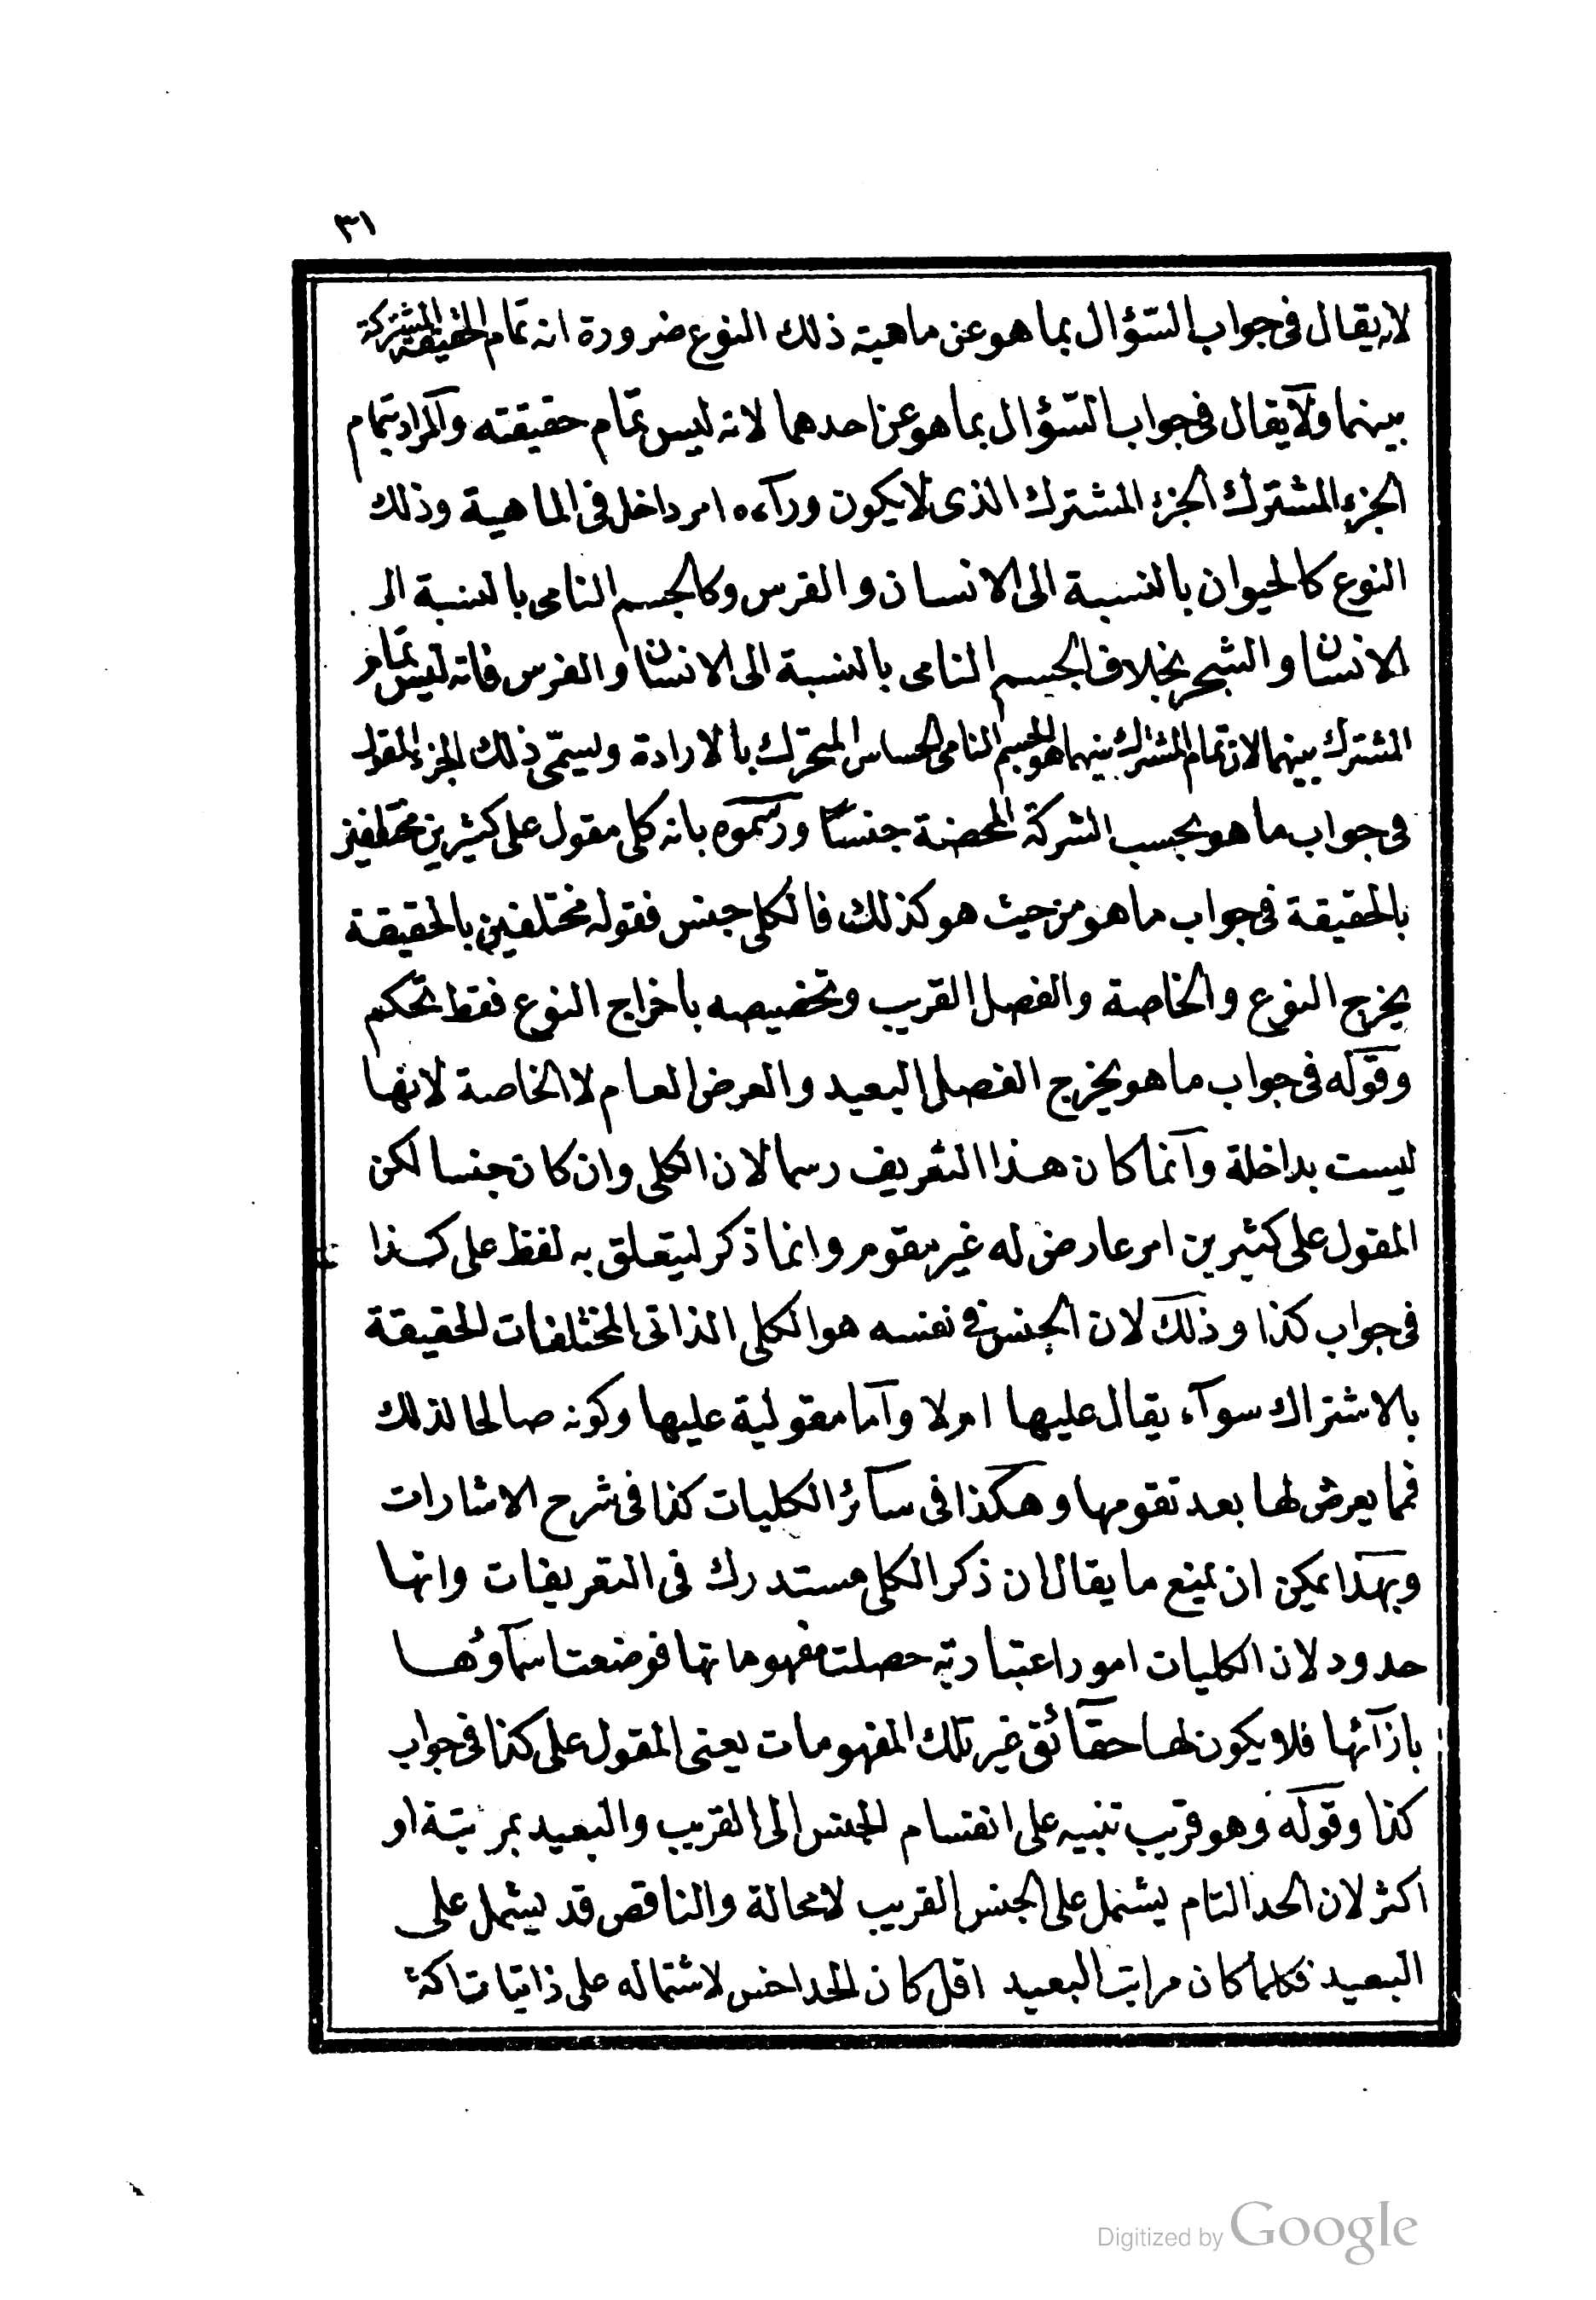 ٣١
لانه يقال فى جواب السّؤال بما هو عن ماهية ذلك النوع ضرورة انه تمام الحقيقة المشتركة
بينهما ولا يقال فى جواب السّؤال بما هو عن احدهما لانه ليس تمام حقيقته والمراد بتمام
الجزء المشترك الجزء المشترك الذى لا يكون ورآءه امر داخل فى الماهية وذلك
النوع كالحيوان بالنسبة الى الانسان والفرس وكالجسم النامى بالنسبة الى
الانسان والشجر بخلاف الجسم النامى بالنسبة الى الانسان والفرس فانه ليس تمام
المشترك بينهما لان تمام المشترك بينهما هو الجسم النامى الحساس المتحرّك بالارادة ويسمّى ذلك الجزء المقول
فى جواب ما هو بحسب الشركة المحضة جنسًا ورسّموه بانه كلى مقول على كثيرين مختلفين
بالحقيقة فى جواب ما هو من حيث هو كذلك فالكلى جنس فقوله مختلفين بالحقيقة
يخرج النوع والخاصة والفصل القريب وتخصيصه باخراج النوع فقط تحكم
وقوله فى جواب ما هو يخرج الفصل البعيد والعرض العام لا الخاصة لانها
ليست بداخلة وانما كان هذا التعريف رسما لان الكلى وان كان جنسا لكن
المقول على كثيرين امر عارض له غير مقوم وانما ذكر ليتعلق به لفظ على كذا
فى جواب كذا وذلك لان الجنس فى نفسه هو الكلى الذاتى لمختلفات الحقيقة
بالاشتراك سوآء يقال عليها ام لا وآما مقولية عليها وكونه صالحا لذلك
فمما يعرض لها بعد تقومها وهكذا فى سآئر الكليات كذا فى شرح الاشارات
وبهذا يمكن ان يمنع ما يقال ان ذكر الكلى مستدرك فى التعريفات وانها
حدود لان الكليات امور اعتبارية حصلت مفهوماتها فوضعت اسمآوها
بازآئها فلا يكون لها حقآئق غير تلك المفهومات يعنى المقول على كذا فى جواب
كذا وقوله وهو قريب تنبيه على انقسام الجنس الى القريب والبعيد بمرتبة او
اكثر لان الحد التام يشتمل على الجنس القريب لا محالة والناقص قد يشتمل على
البعيد فكلما كان مراتب البعيد اقل كان الحد اخس لاشتماله على ذاتيات اكثر
Digitized by Google